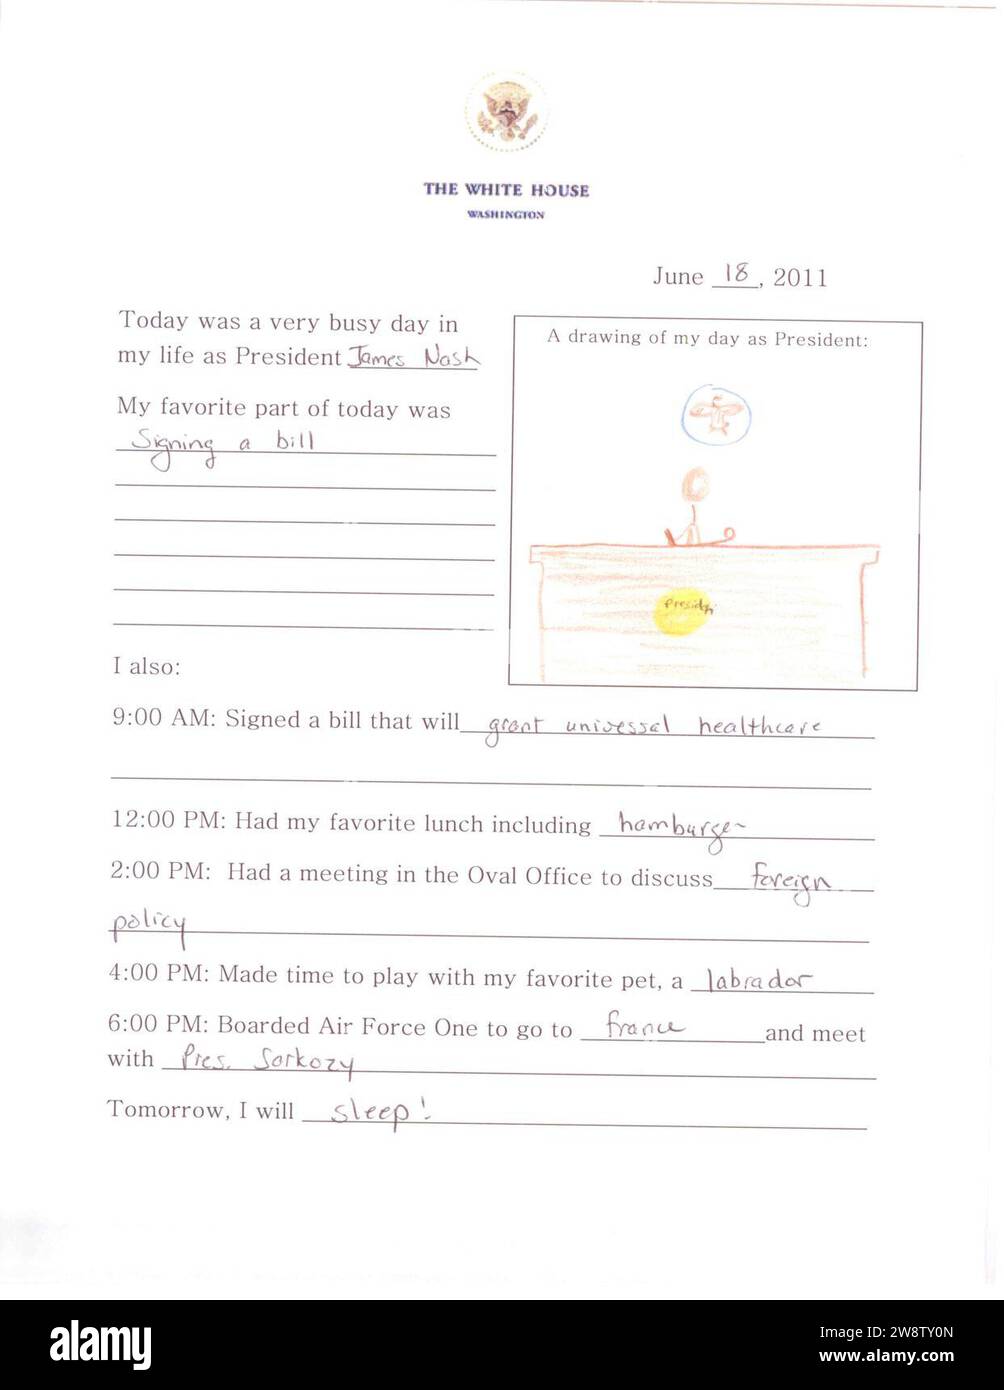 THE WHITE HOUSE
WASHINGTON
June 18, 2011
Today was a very busy day in
my life as President James Nash
My favorite part of today was
Signing a bill
A drawing of my day as President:
I also:
9:00 AM: Signed a bill that will grant universal healthcare
12:00 PM: Had my favorite lunch including hamburger
2:00 PM: Had a meeting in the Oval Office to discuss foreign
policy
4:00 PM: Made time to play with my favorite pet, a labrador
6:00 PM: Boarded Air Force One to go to france and meet
with Pres. Sarkozy
Tomorrow, I will sleep!
alamy
Image ID: 2W8TY0N
www.alamy.com